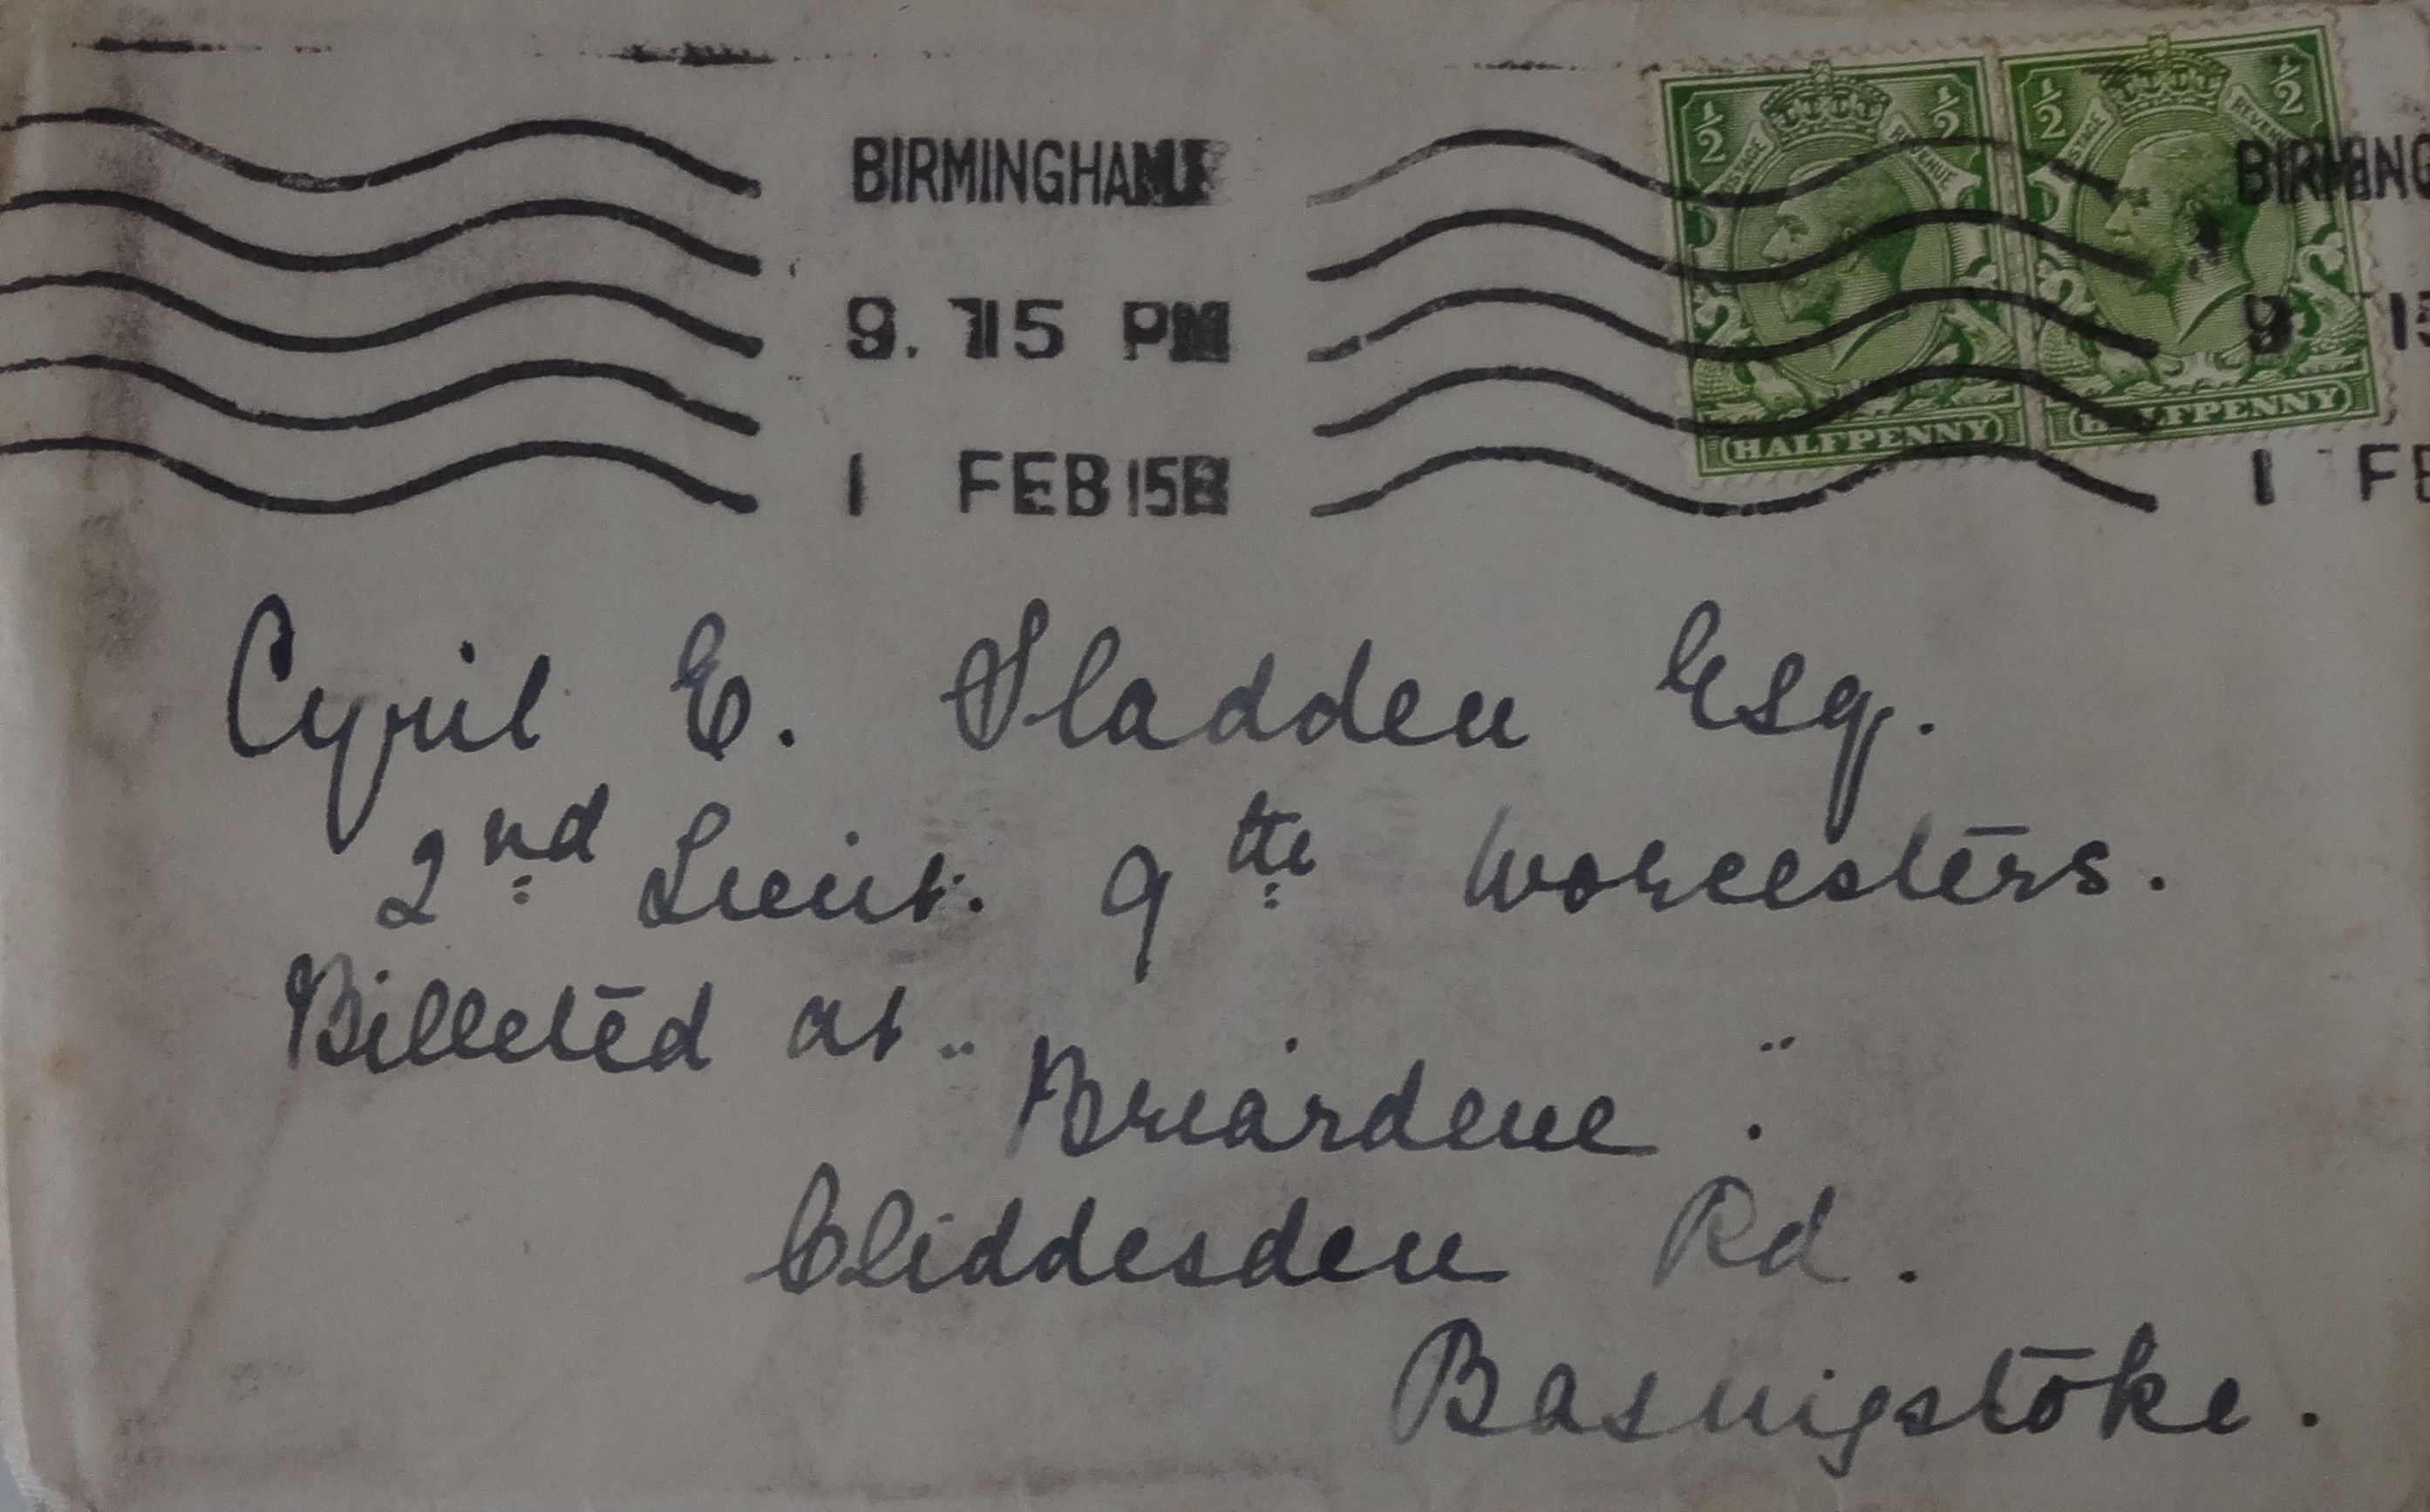 BIRMINGHAM
9. 15 PM
1 FEB 15
½ POSTAGE REVENUE ½
HALFPENNY
½ POSTAGE REVENUE ½
HALFPENNY
BIRMING
9 15
1 FE
Cyril E. Sladden Esq.
2nd Lieut. 9th Worcesters.
Billeted at
"Briardene".
Cliddesden Rd.
Basingstoke.